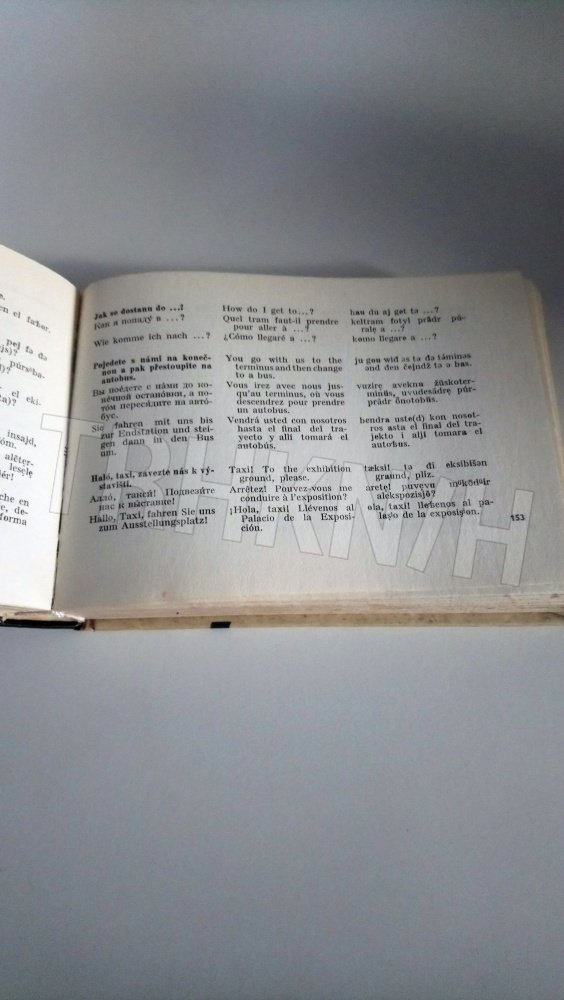 e.
en el father.
Jak se dostanu do ...?
Как я попаду в ...?
Wie komme ich nach ...?
Pojedete s námi na koneč-
nou a pak přestoupíte na
autobus.
Вы поедете с нами до ко-
нечной остановки, а по-
том пересядите на авто́-
бус.
Sie fahren mit uns bis
zur Endstation und stei-
gen dann in den Bus
um.
Haló, taxi, zavezte nás k vý-
stavišti.
Алло, такси! Подвезите
нас к выставке!
Hallo, Taxi, fahren Sie uns
zum Ausstellungsplatz!
How do I get to...?
Quel tram faut-il prendre
pour aller à ...?
¿Cómo llegaré a ...?
You go with us to the
terminus and then change
to a bus.
Vous irez avec nous jus-
qu'au terminus, où vous
descendrez pour prendre
un autobus.
Vendrá usted con nosotros
hasta el final del tra-
yecto y allí tomará el
autobús.
Taxi! To the exhibition
ground, please.
Arrêtez! Pouvez-vous me
conduire à l'exposition?
¡Hola, taxi! Llévenos al
Palacio de la Exposi-
ción.
hau du aj get tə ...?
keltram fotyl prãdr pů-
ralę a ...?
komo ljegare a ...?
ju gou wið as tə ðə táminəs
ənd ðen čejndž tə ə bas.
vuzirę aveknu žüskoter-
minüs, uvudesãdrę půr-
prãdr önotobüs.
bendra uste(d) kon nosot-
ros asta el final del tra-
jekto i alji tomara el
autoƀus.
tæksi! tə ði eksibišən
graund, plíz.
alekspozisjõ?
ola, taxi! ljeƀenos al pa-
153
TRHKNIH